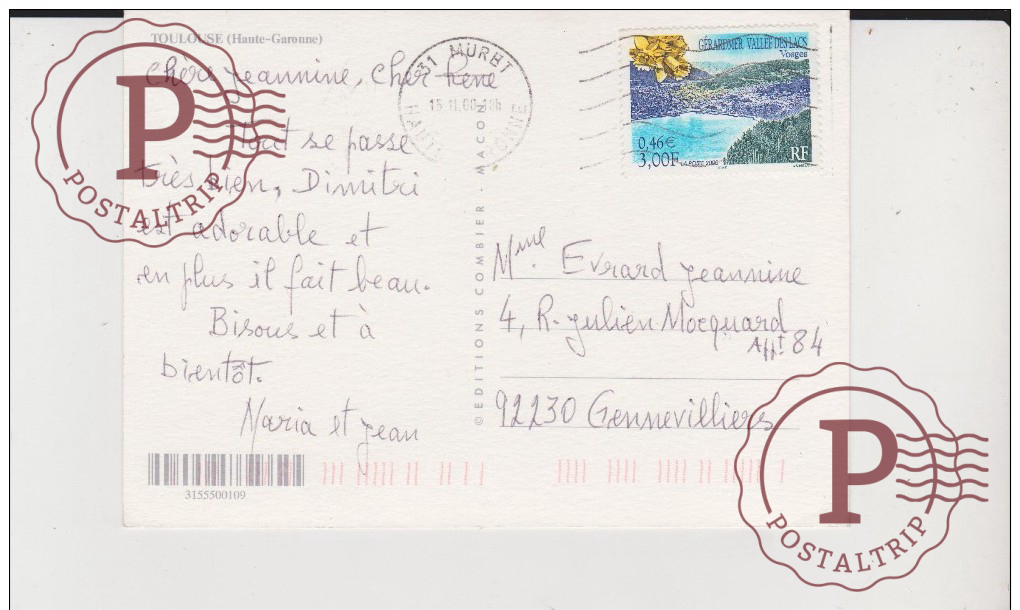 TOULOUSE (Haute-Garonne)
Chère Jeannine, Cher René
Tout se passe
très bien, Dimitri
est adorable et
en plus il fait beau.
Bisous et à
bientôt.
Maria et Jean
3155500109
© EDITIONS COMBIER - MACON
31 MURET
HAUTE GARONNE
GÉRARDMER VALLÉE DES LACS
Vosges
0,46€
3,00F
LA POSTE 2000
RF
Mme. Evrard Jeannine
4, R. Julien Mocquard
Appt 84
92230 Gennevilliers
P
POSTALTRIP
P
POSTALTRIP